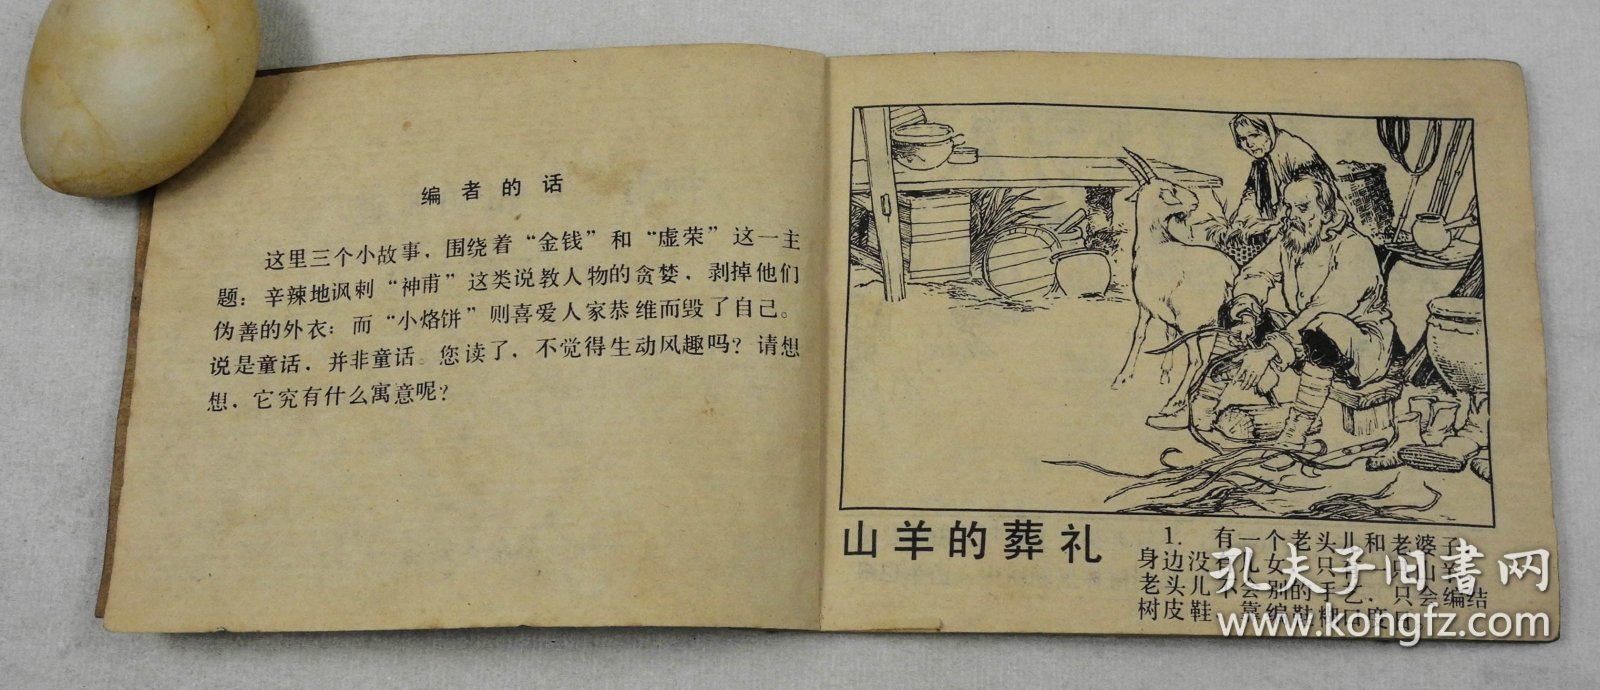 编者的话
这里三个小故事，围绕着“金钱”和“虚荣”这一主
题：辛辣地讽刺“神甫”这类说教人物的贪婪，剥掉他们
伪善的外衣；而“小烙饼”则喜爱人家恭维而毁了自己。
说是童话，并非童话。您读了，不觉得生动风趣吗？请想
想，它究有什么寓意呢？
山羊的葬礼
1. 有一个老头儿和老婆子
身边没有儿女，只有一只山羊
老头儿不会别的手艺，只会编结
树皮鞋，靠编鞋糊口度日
孔夫子旧书网
www.kongfz.com